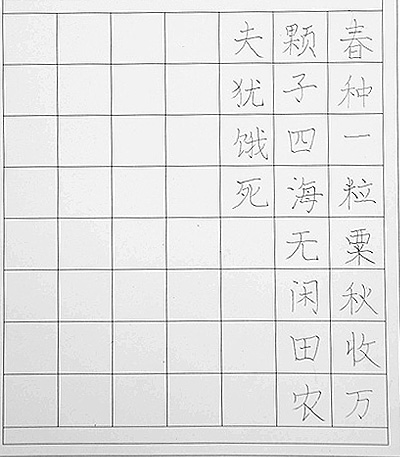 春种一粒粟秋收万
颗子四海无闲田农
夫犹饿死